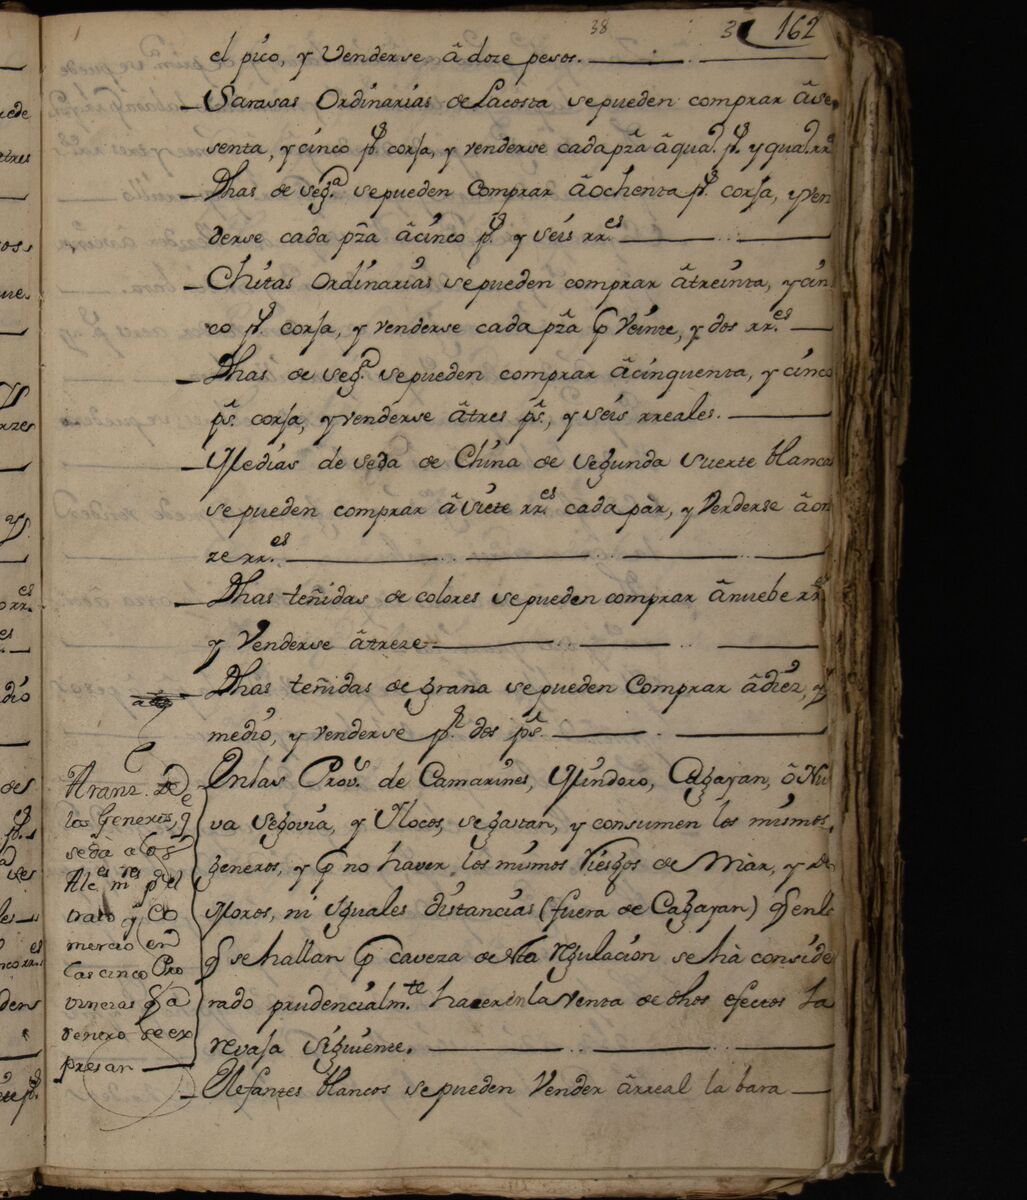 38 3 162
el pico, y Venderse â doze pesos.
Sarasas Ordinarias de Lacosta sepueden comprar âse
senta, y cinco ps. corja, y venderse cada pza âqua.o ps. y qua.o rrs
Dhas de seg.a sepueden Comprar âochenta ps. corja, yven
derse cada pza âcinco ps. y seis rr.es
Chitas Ordinarias sepueden comprar âtreinta, ycin
co ps. corja, y venderse cada pza p Veinte, y dos rr.es
Dhas de seg.a sepueden comprar âcinquenta, y cinco
ps. corja, yvenderse âtres ps., y seis rreales.
Medias de seda de China de segunda suerte blancas
sepueden comprar âsiete rr.es cada pàr, y Verderse âon
ze rr.es
Dhas teñidas de colores sepueden comprar ânuebe rr.es
y Venderse âtreze
Dhas teñidas de grana sepueden Comprar âdiez, y
medio, y venderse p.r dos ps.
Enlas Prov.s de Camarines, Mindoro, Cagayan, ô Nu
va Segovia, y Ylocos, segastan, y consumen los mismos
generos, y p no haver los mismos Riesgos de Mar, y de
Moros, ni Yguales distancias (fuera de Cagayan) q enlas
q se hallan p caveza desta Regulacion sehà conside
rado prudencialm.te hacer enla venta de dhos efectos la
revaja siguiente.
Elefantes blancos sepueden Vender ârreal la bara
Aranz. de
los Generos, q
seda a los
Alc.es m.res p.r el
trato y Co
mercio en
las cinco Pro
vincias q a
dentro se ex
presan